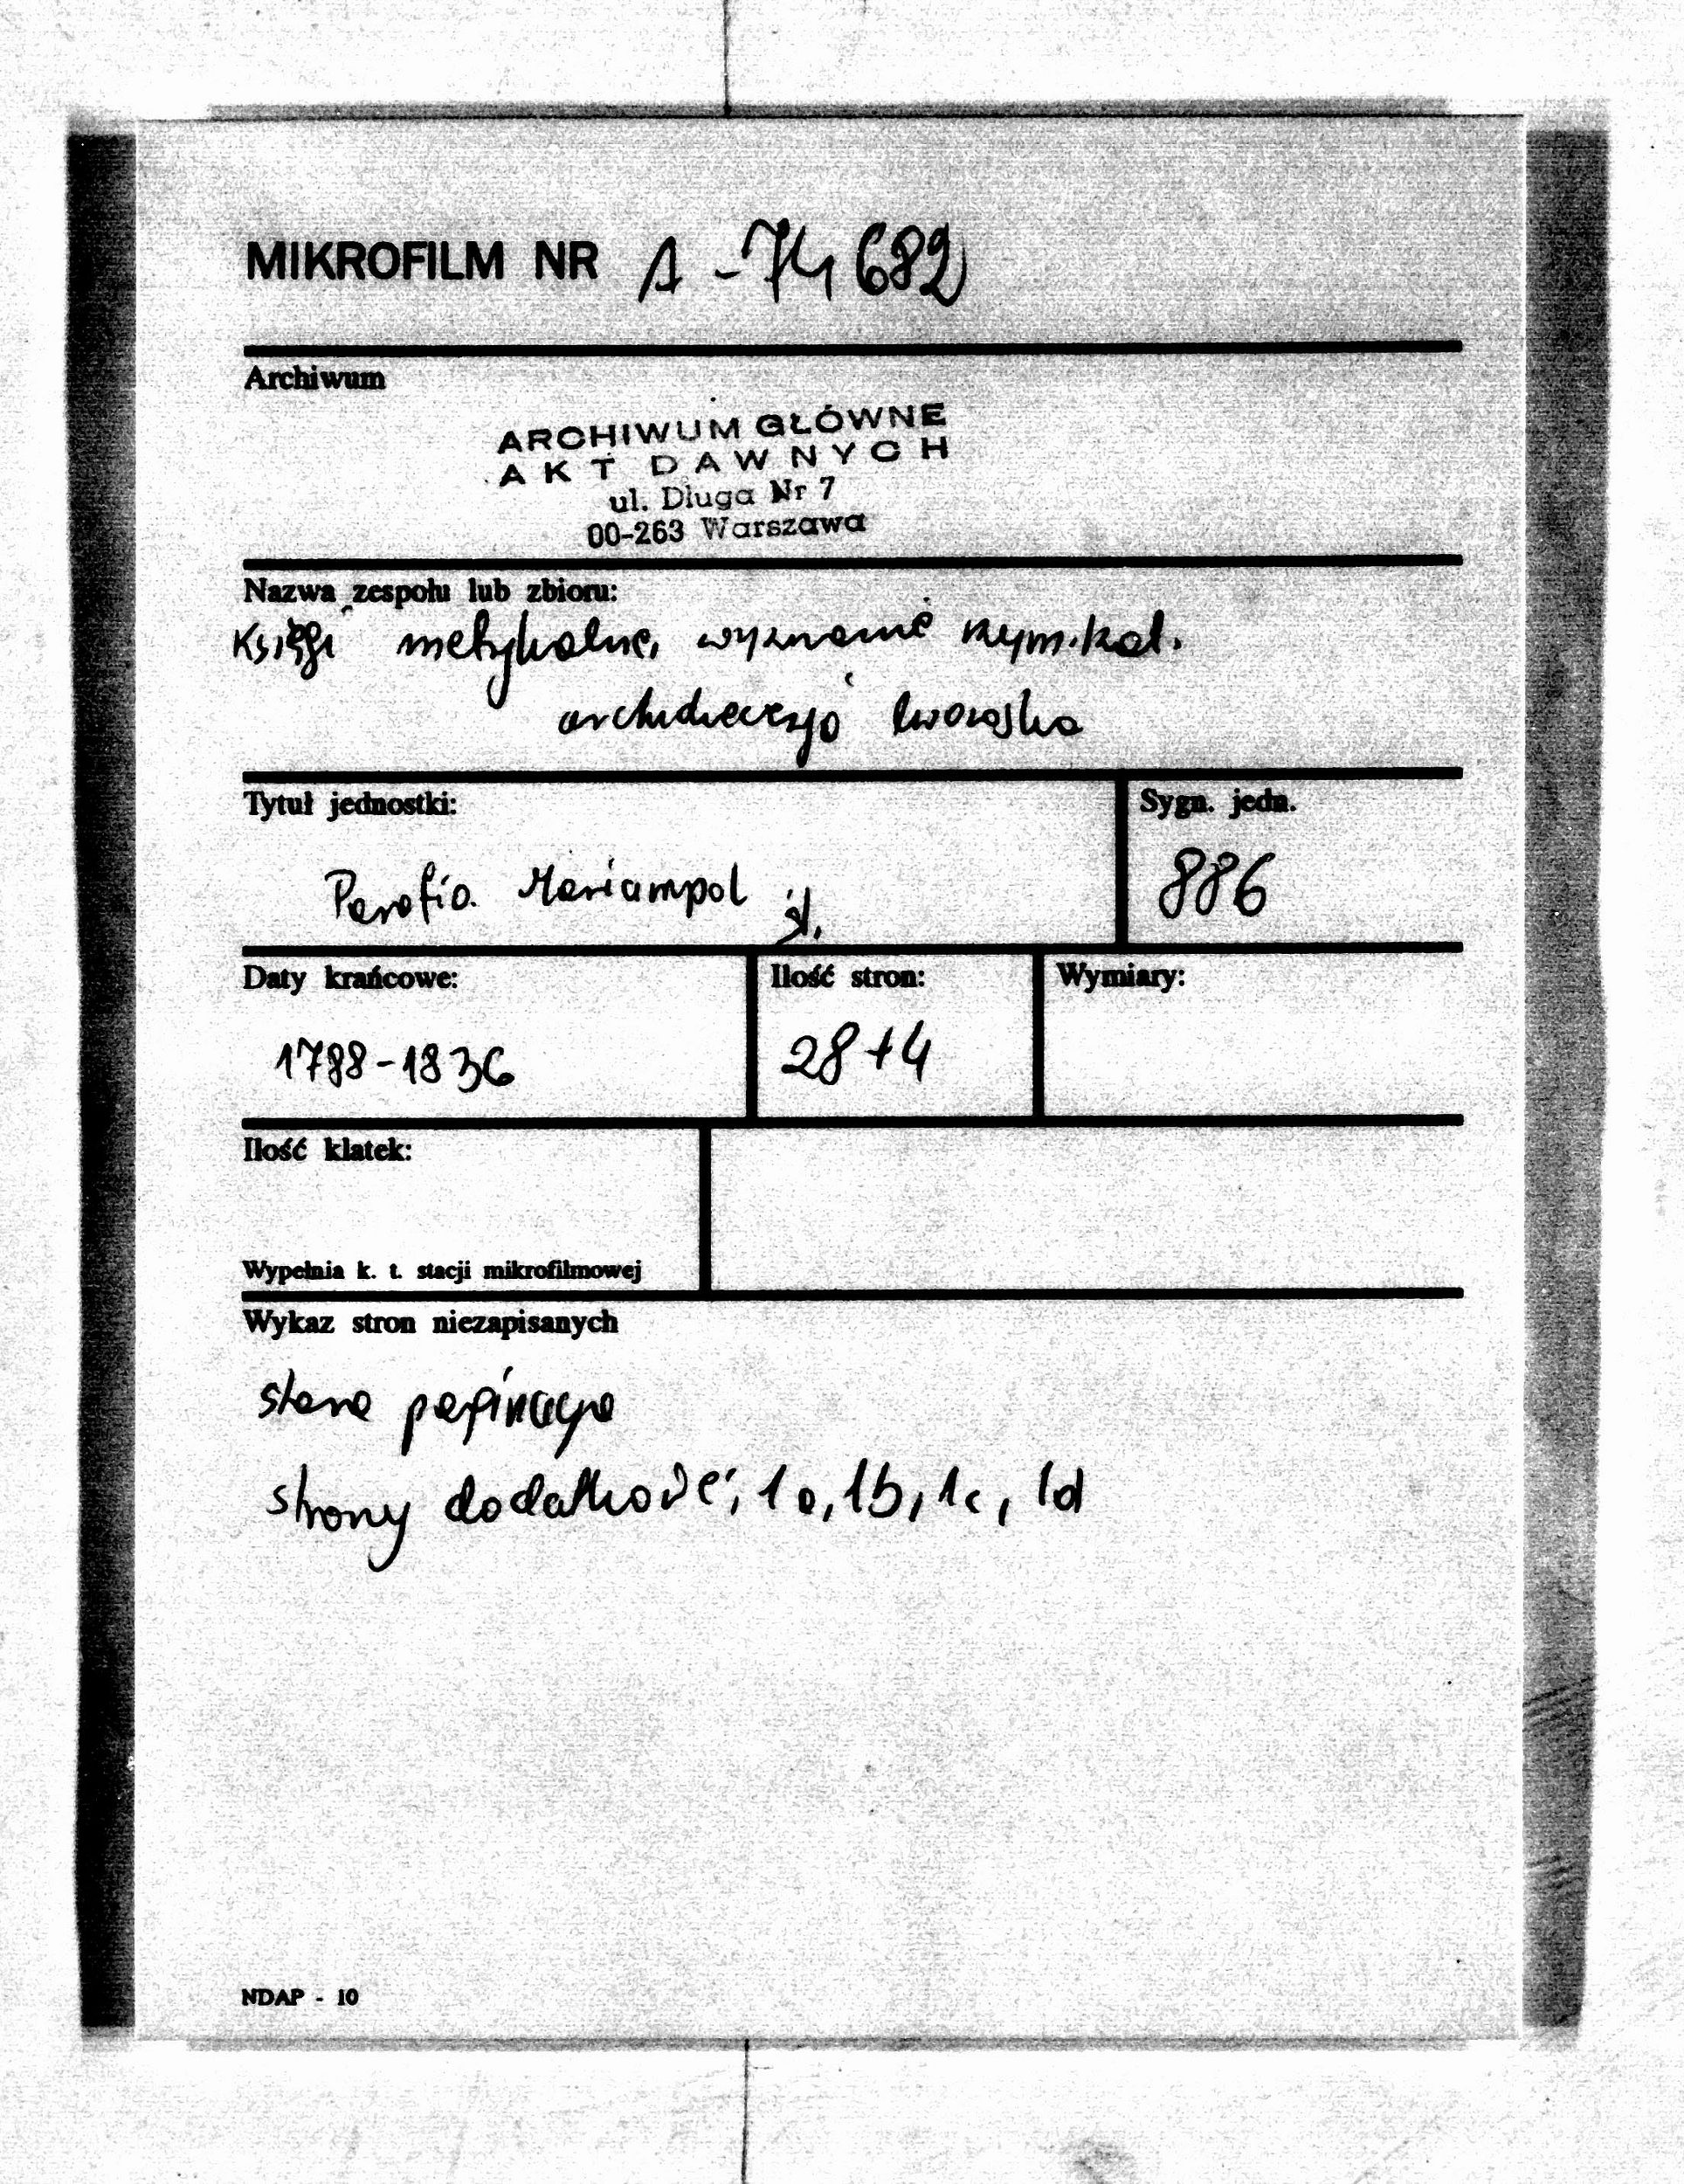 MIKROFILM NR A-74682
Archiwum
ARCHIWUM GŁÓWNE
AKT DAWNYCH
ul. Długa Nr 7
00-263 Warszawa
Nazwa zespołu lub zbioru:
Księgi metrykalne, wyznanie rzym.kat.
archidiecezja lwowska
Tytuł jednostki:
Sygn. jedn.
Parafia Mariampol
886
Daty krańcowe:
Ilość stron:
Wymiary:
1788-1836
28+4
Ilość klatek:
Wypełnia k. t. stacji mikrofilmowej
Wykaz stron niezapisanych
stara paginacja
strony dodatkowe; 1a, 1b, 1c, 1d
NDAP - 10